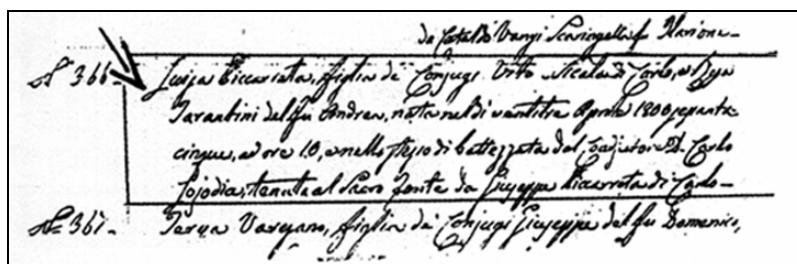 da Cataldo Vangi Scaringella fu Ilarione-
N° 366- Luisa Piccarreta, figlia de' Conjugi Vito Nicola di Carlo, e Rosa
Tarantini del fu Andrea, nata nel dì ventitre Aprile 1800 sessanta=
cinque, ad ore 10, e nello stesso dì battezzata dal D. Carlo
Lojodice, tenuta al Sacro Fonte da Giuseppe Piccarreta di Carlo-
N° 367- figlia de' Conjugi Giuseppe del fu Domenico,